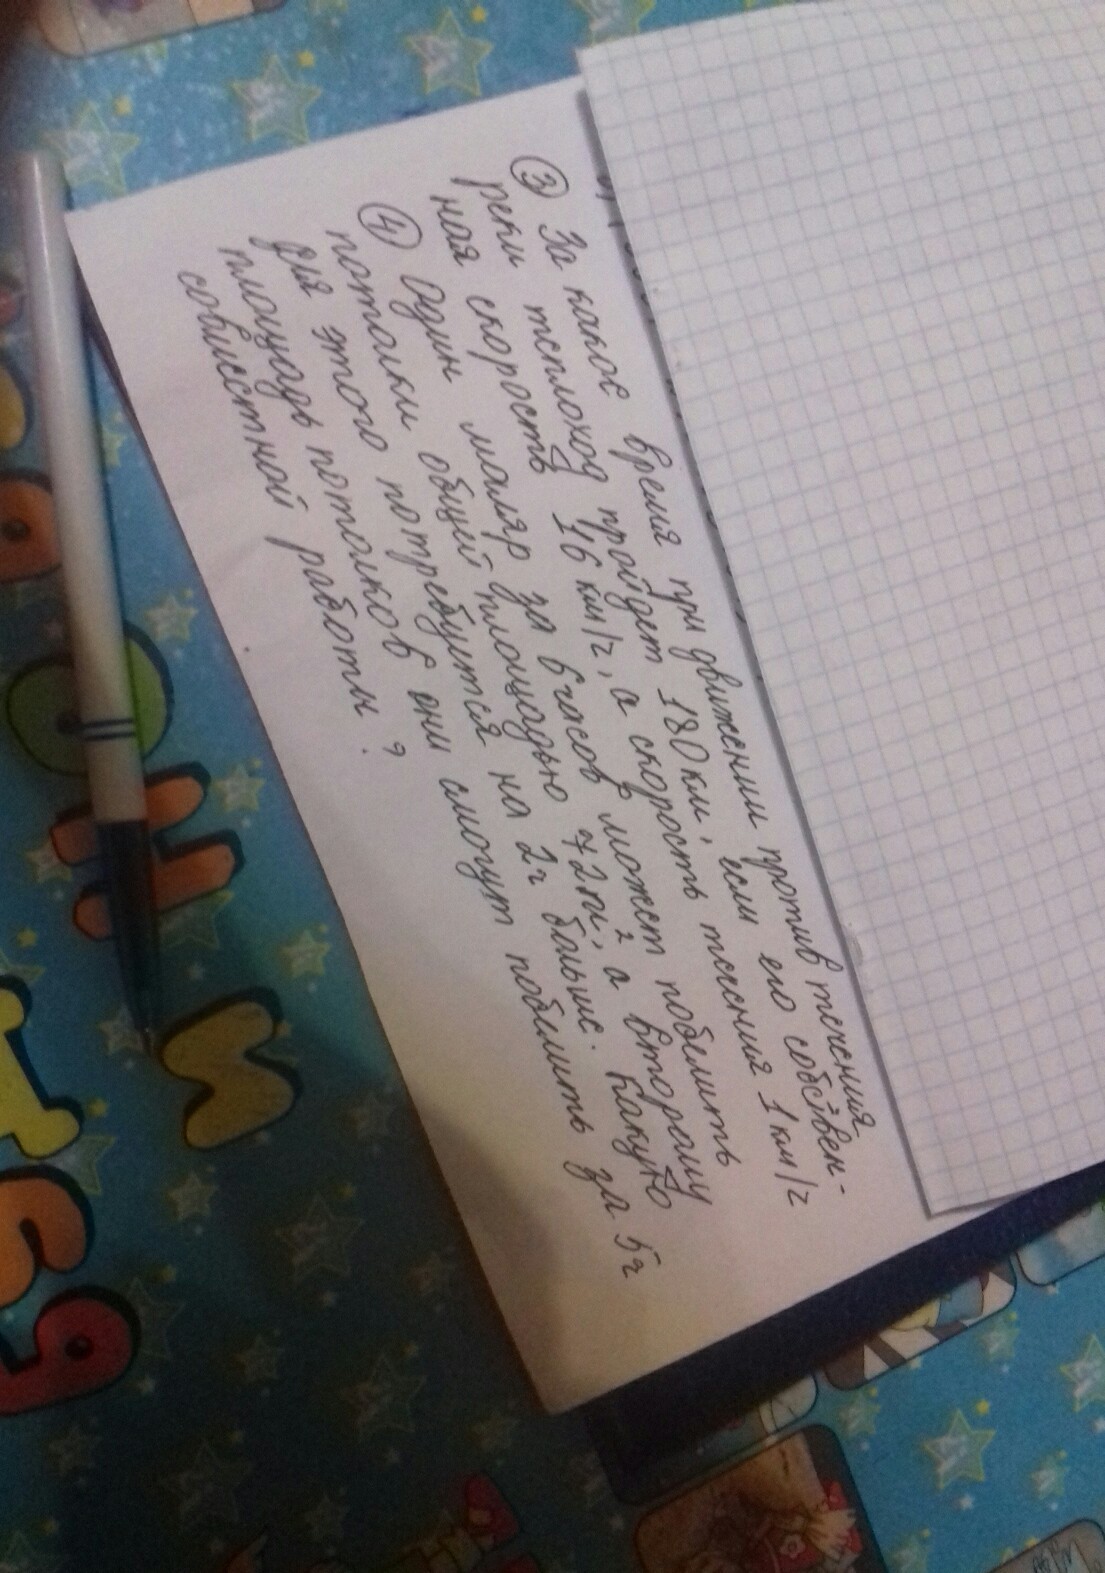 ③ За какое время при движении против течения
реки теплоход пройдет 180 км, если его собствен-
ная скорость 16 км/ч, а скорость течения 1 км/ч
④ Один маляр за 6 часов может побелить
потолки общей площадью 72 м², а второму
для этого потребуется на 2ч больше. Какую
площадь потолков они смогут побелить за 5ч
совместной работы?